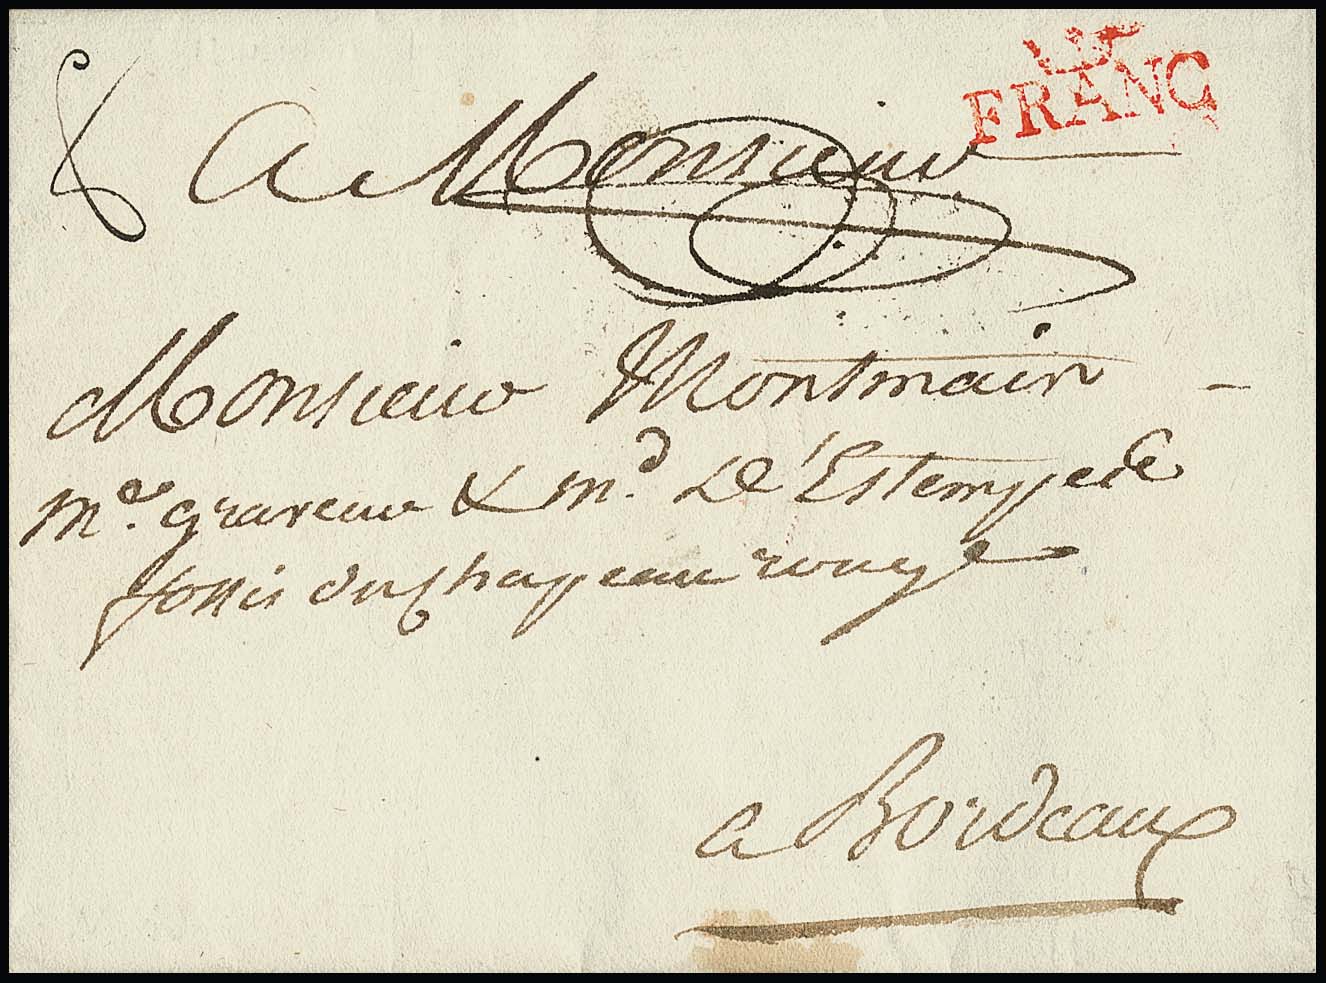 FRANC
8 A Monsieur
Monsieur Montmain
Me. graveur & Md. De l'Estempe
fossés du Chapeau rouge
a Bordeaux